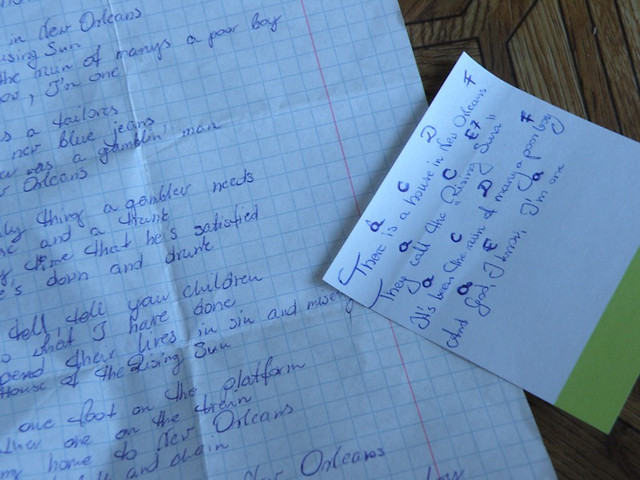 in New Orleans
ising Sun
the ruin of manys a poor boy
ow, I'm one
s a tailores
new blue jeans
er was a gamblin' man
Orleans
ly thing a gambler needs
se and a trunk
y time that he's satisfied
e's down and drunk
tell, tell your children
what I have done
pend their lives in sin and misery
House of the Rising Sun
one foot on the platform
ther one on the train
my home to New Orleans
ll and chain
New Orleans
A C D F
There is a house in New Orleans
A C E7
They call the "Rising Sun"
A C D F
It's been the ruin of many a poor boy
A E A
And God, I know, I'm one